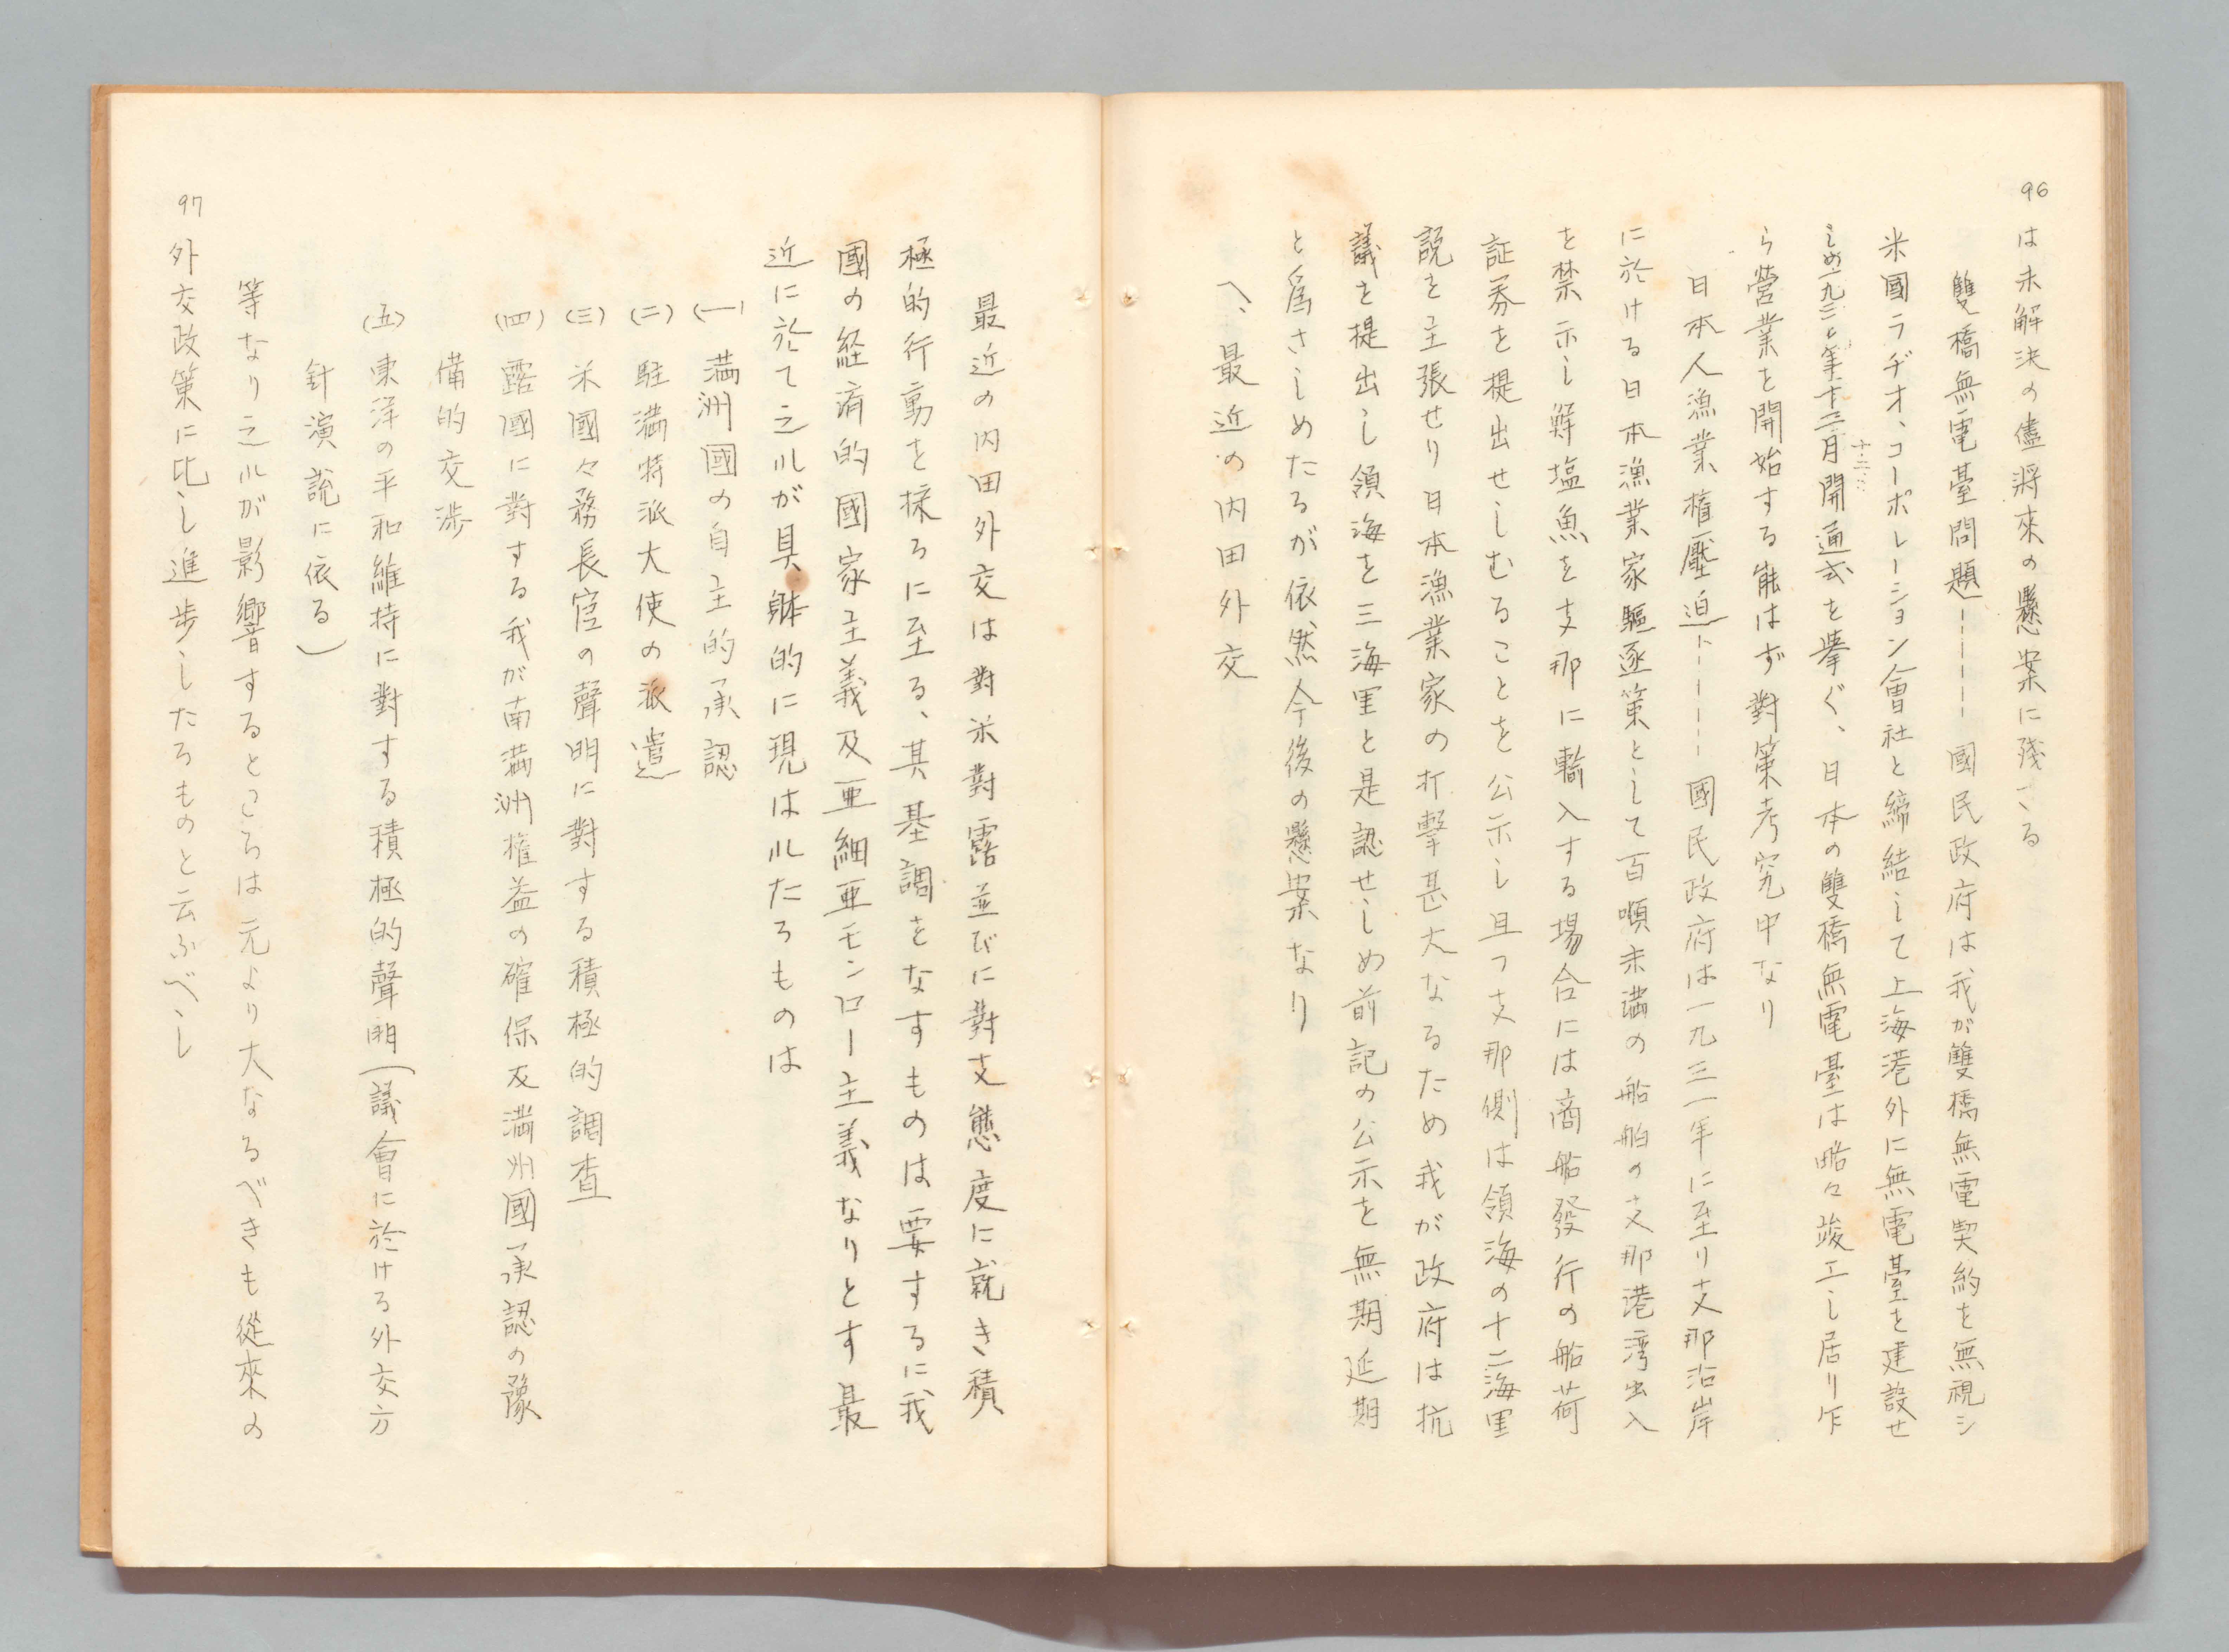 96
は未解決の儘將來の懸案に殘さる
雙橋無電臺問題―――――國民政府は我が雙橋無電契約を無視シ
米國ラヂオ、コーポレーション會社と締結して上海港外に無電臺を建設せ
しめ一九三〇年十二月開通式を擧ぐ、日本の雙橋無電臺は略々竣工し居り乍
ら營業を開始する能はず對策考究中なり
日本人漁業權壓迫―――――國民政府は一九三一年に至り支那沿岸
に於ける日本漁業家驅逐策として百噸未滿の船舶の支那港湾出入
を禁示し鮮塩魚を支那に輸入する場合には商船發行の船荷
証券を提出せしむることを公示し且つ支那側は領海の十二海里
説を主張せり日本漁業家の打擊甚大なるため我が政府は抗
議を提出し領海を三海里と是認せしめ前記の公示を無期延期
と爲さしめたるが依然今後の懸案なり
へ、最近の内田外交
最近の内田外交は對米對露並びに對支態度に就き積
極的行動を採るに至る、其基調をなすものは要するに我
國の経済的國家主義及亜細亜モンロー主義なりとす最
近に於て之れが具体的に現はれたるものは
(一) 満洲國の自主的承認
(二) 駐満特派大使の派遣
(三) 米國々務長官の聲明に對する積極的調査
(四) 露國に對する我が南満洲権益の確保及満州國承認の豫
備的交渉
(五) 東洋の平和維持に對する積極的聲明(議會に於ける外交方
針演說に依る)
等なり之れが影響するところは元より大なるべきも從來の
97
外交政策に比し進歩したるものと云ふべし